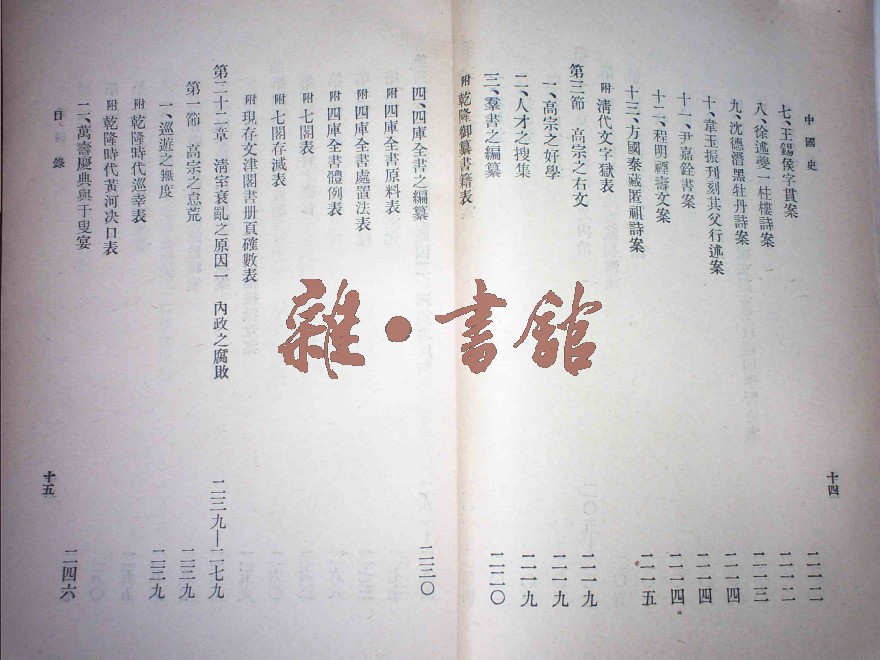 中國史
七、王錫侯字貫案 二一二
八、徐述夔一柱樓詩案 二一二
九、沈德潛黑牡丹詩案 二一三
十、韋玉振刊刻其父行述案 二一四
十一、尹嘉銓書案 二一四
十二、程明禋壽文案 二一四
十三、方國泰藏匿祖詩案 二一五
附 清代文字獄表
第三節 高宗之右文 二一九
一、高宗之好學 二一九
二、人才之搜集 二一九
三、羣書之編纂 二二〇
附 乾隆御纂書籍表
十四
四、四庫全書之編纂 二三〇
附 四庫全書原料表
附 四庫全書處置法表
附 四庫全書體例表
附 七閣表
附 七閣存滅表
附 現存文津閣書册頁確數表
第二十二章 清室衰亂之原因一 內政之腐敗 二三九—二七九
第一節 高宗之怠荒 二三九
一、巡遊之無度 二三九
附 乾隆時代巡幸表
附 乾隆時代黃河决口表
二、萬壽慶典與千叟宴 二四六
目 錄
十五
雜·書館